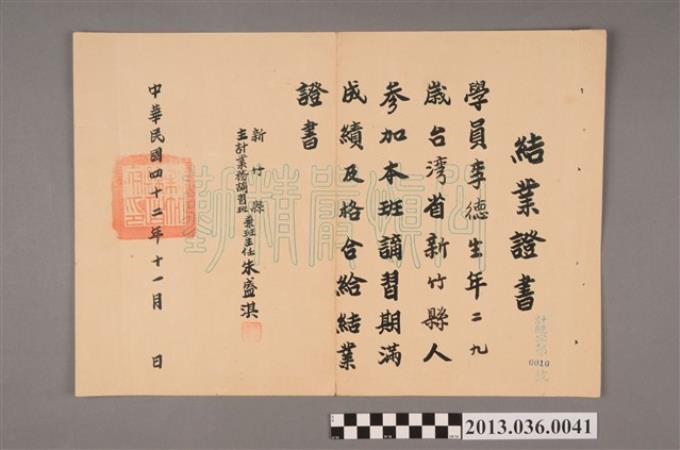 結業證書
學員李德生年二九
歲台湾省新竹縣人
參加本班講習期滿
成績及格合給結業
證書
新竹縣
主計業務講習班兼班主任朱盛淇
中華民國四十二年十一月 日
0010
2013.036.0041